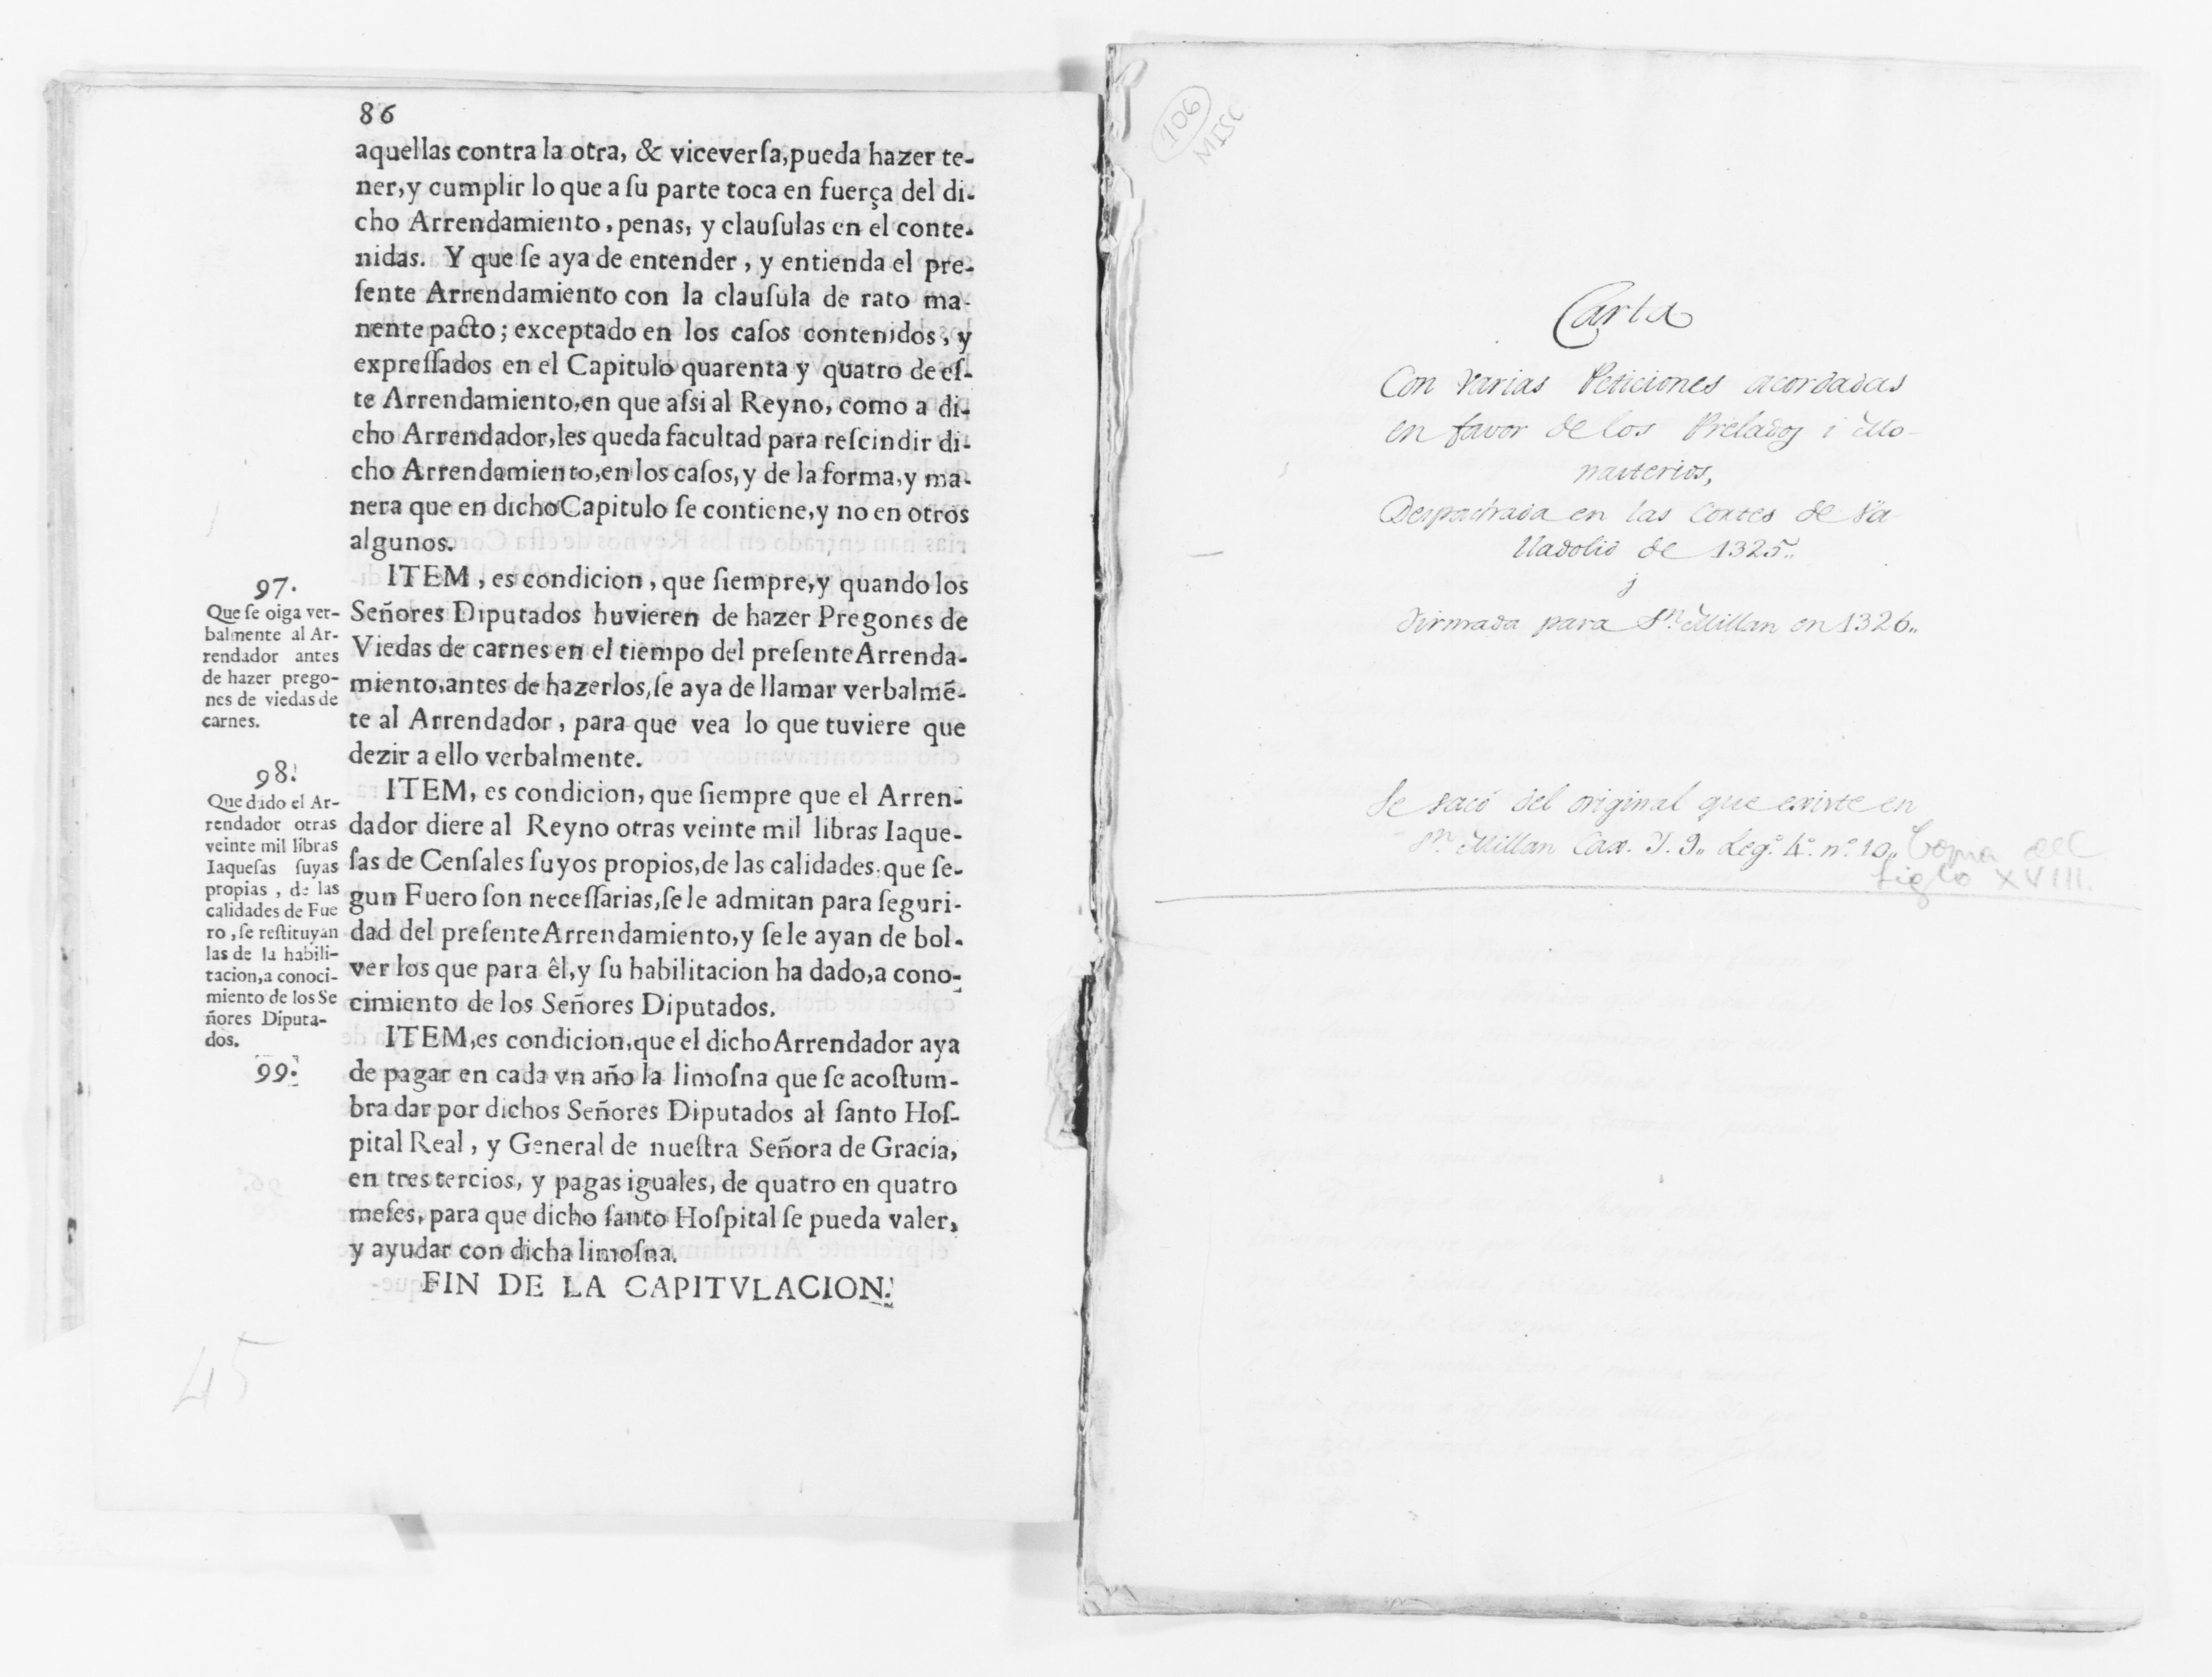 86
aquellas contra la otra, & viceverſa, pueda hazer te-
ner, y cumplir lo que a ſu parte toca en fuerça del di-
cho Arrendamiento, penas, y clauſulas en el conte-
nidas. Y que ſe aya de entender, y entienda el pre-
ſente Arrendamiento con la clauſula de rato ma-
nente pacto; exceptado en los caſos contenidos, y
expreſſados en el Capitulo quarenta y quatro de eſ-
te Arrendamiento, en que aſsi al Reyno, como a di-
cho Arrendador, les queda facultad para reſcindir di-
cho Arrendamiento, en los caſos, y de la forma, y ma-
nera que en dicho Capitulo ſe contiene, y no en otros
algunos.
97.
Que ſe oiga ver-
balmente al Ar-
rendador antes
de hazer prego-
nes de viedas de
carnes.
ITEM, es condicion, que ſiempre, y quando los
Señores Diputados huvieren de hazer Pregones de
Viedas de carnes en el tiempo del preſente Arrenda-
miento, antes de hazerlos, ſe aya de llamar verbalmẽ-
te al Arrendador, para que vea lo que tuviere que
dezir a ello verbalmente.
98.
Que dado el Ar-
rendador otras
veinte mil libras
Iaqueſas ſuyas
propias, de las
calidades de Fue
ro, ſe reſtituyan
las de la habili-
tacion, a conoci-
miento de los Se
ñores Diputa-
dos.
ITEM, es condicion, que ſiempre que el Arren-
dador diere al Reyno otras veinte mil libras Iaque-
ſas de Cenſales ſuyos propios, de las calidades, que ſe-
gun Fuero ſon neceſſarias, ſe le admitan para ſeguri-
dad del preſente Arrendamiento, y ſe le ayan de bol-
ver los que para êl, y ſu habilitacion ha dado, a cono-
cimiento de los Señores Diputados.
99.
ITEM, es condicion, que el dicho Arrendador aya
de pagar en cada vn año la limoſna que ſe acoſtum-
bra dar por dichos Señores Diputados al ſanto Hoſ-
pital Real, y General de nueſtra Señora de Gracia,
en tres tercios, y pagas iguales, de quatro en quatro
meſes, para que dicho ſanto Hoſpital ſe pueda valer,
y ayudar con dicha limoſna.
FIN DE LA CAPITVLACION.
45
106
MISC
Carta
Con varias Peticiones acordadas
en favor de los Prelados i Mo-
nasterios,
Despachada en las Cortes de Va-
lladolid de 1325..
j
firmada para Sn. Millan en 1326..
Se sacó del original que existe en
Sn. Millan Cax. J. 9.. Leg.º 4.º n.º 10.. Copia del
Siglo XVIII.